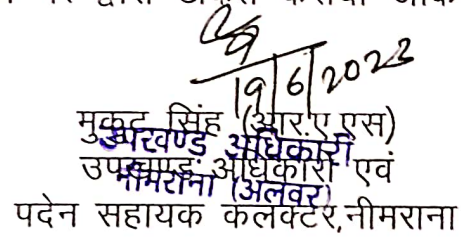 19/6/2023
मुकट सिंह (आर.ए.एस)
उपखण्ड अधिकारी
उपखण्ड अधिकारी एवं
नीमराना (अलवर)
पदेन सहायक कलक्टर,नीमराना